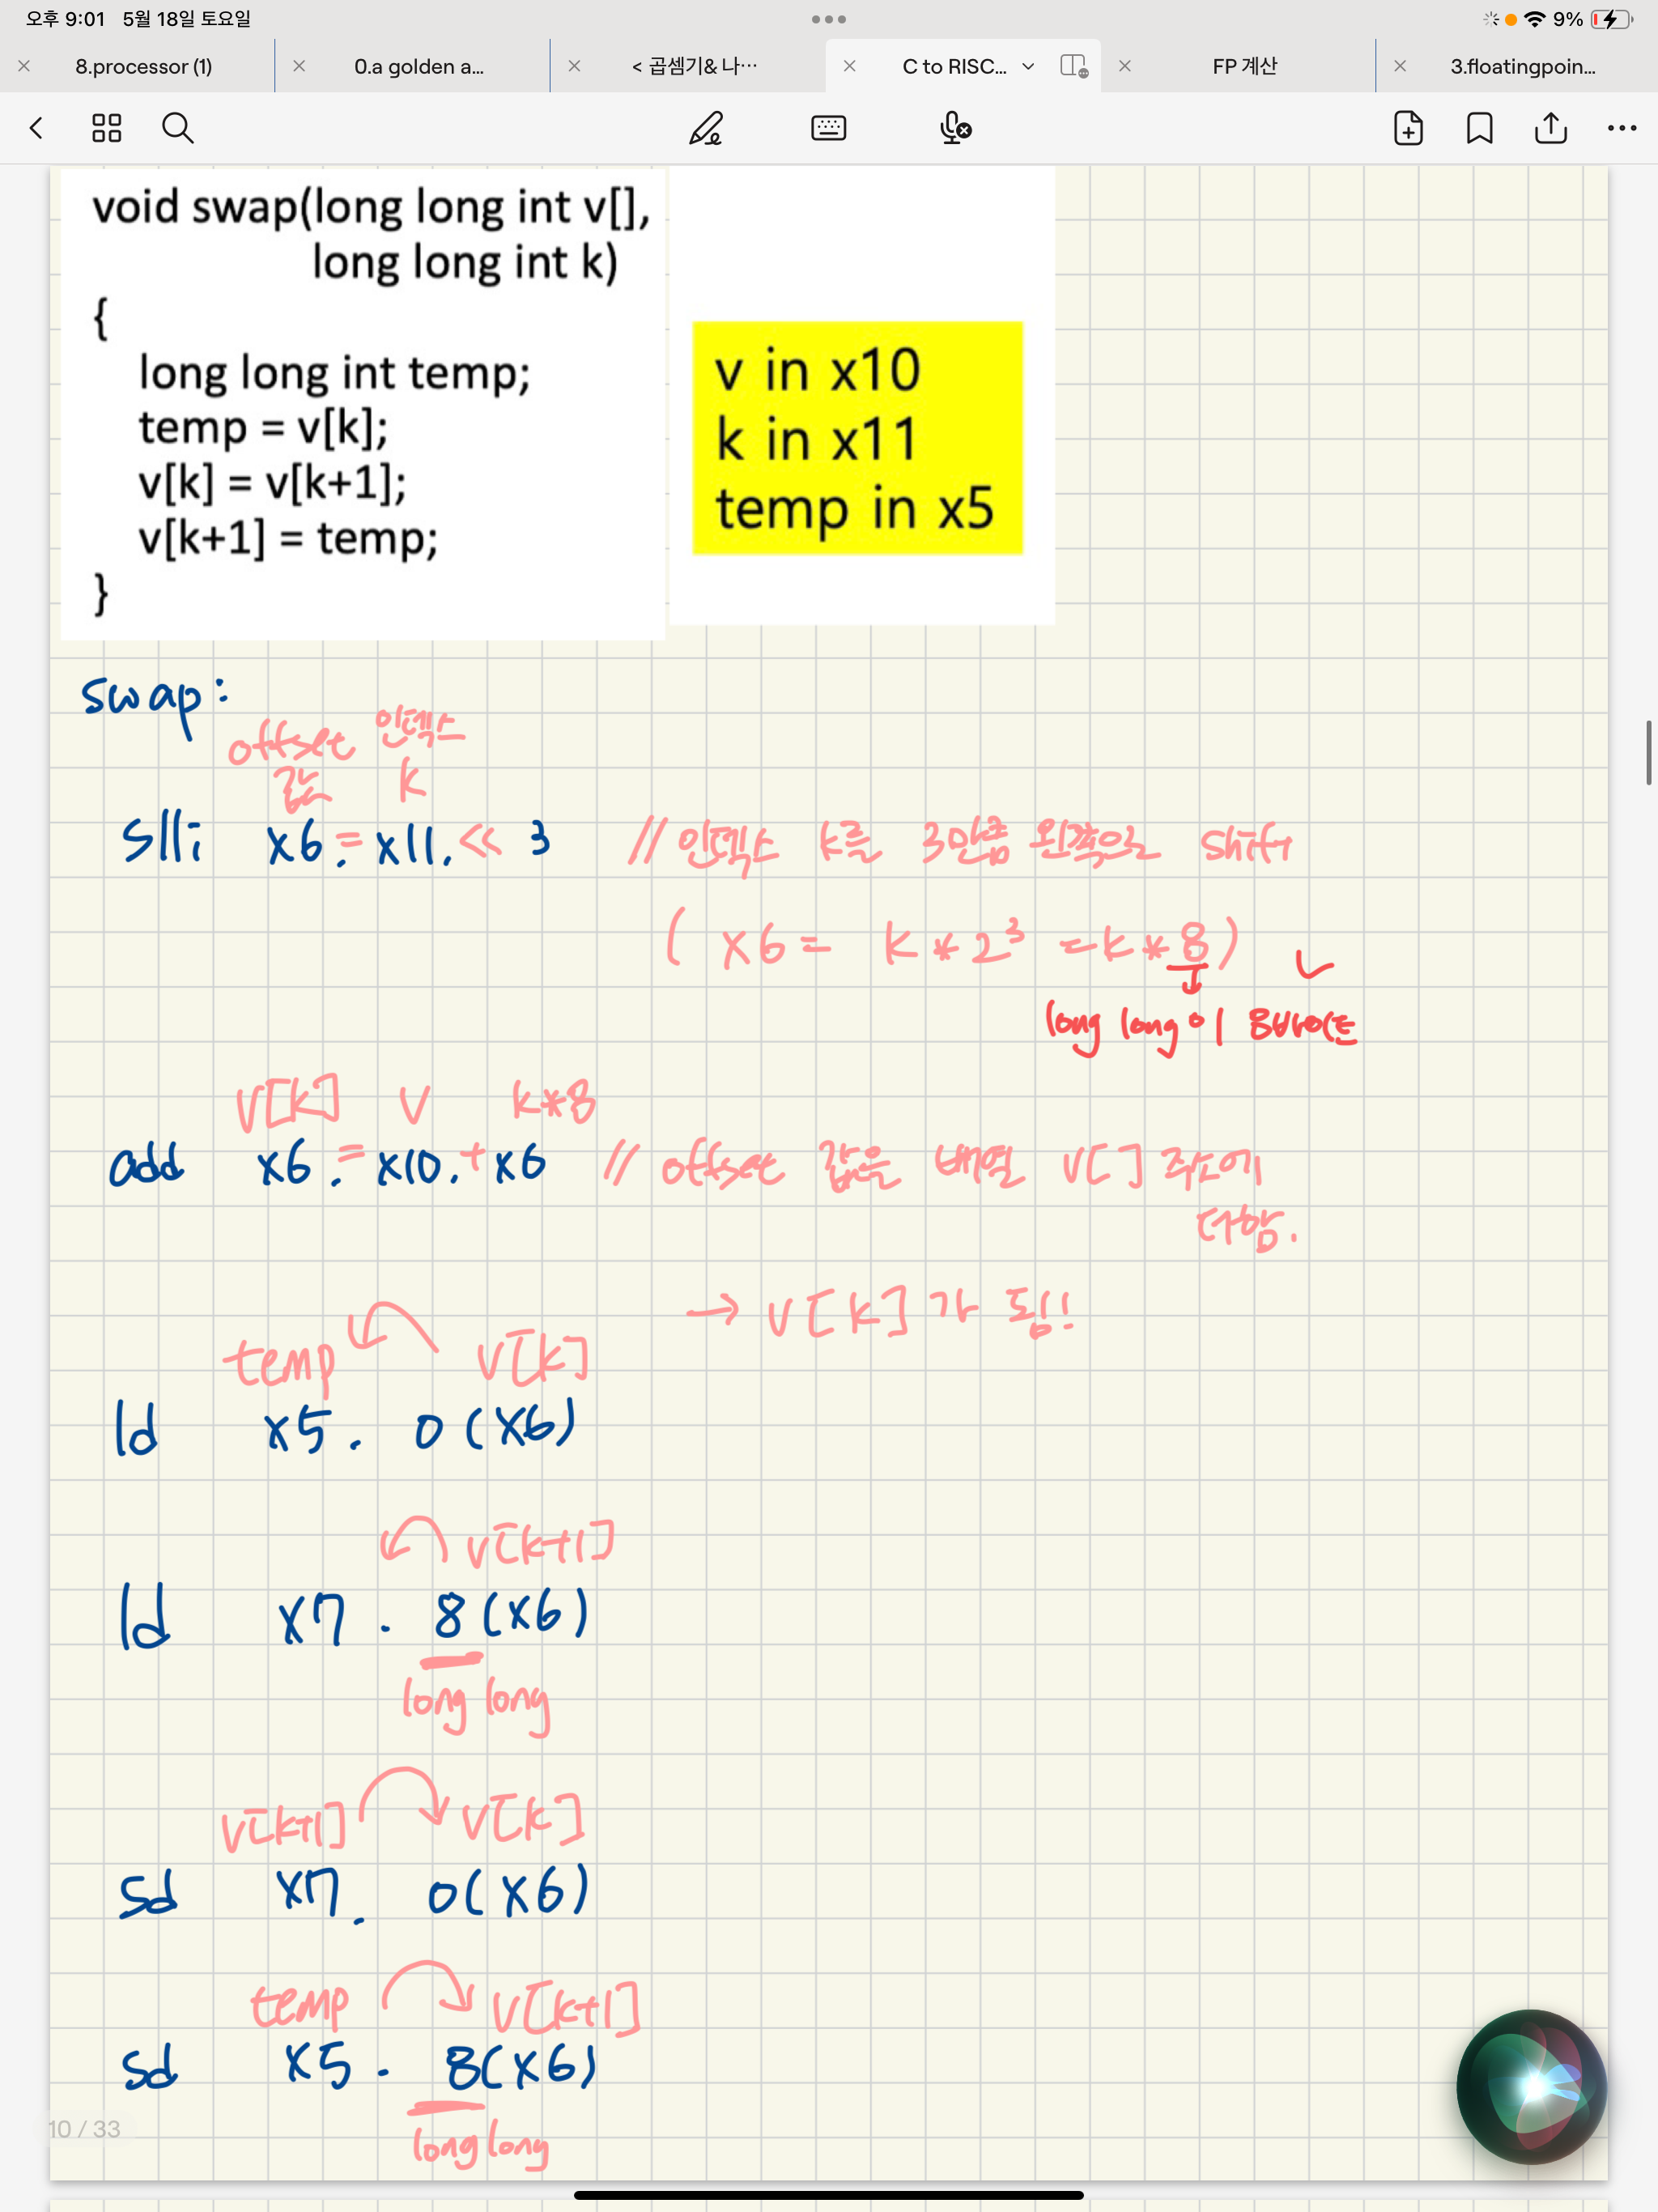 오후 9:01 5월 18일 토요일
9%
8.processor (1)
0.a golden a...
< 곱셈기& 나...
C to RISC...
FP 계산
3.floatingpoin...
void swap(long long int v[],
long long int k)
{
long long int temp;
temp = v[k];
v[k] = v[k+1];
v[k+1] = temp;
}
v in x10
k in x11
temp in x5
swap:
offset 인덱스
값 k
slli x6, = x11, << 3 // 인덱스 k를 3만큼 왼쪽으로 shift
( x6 = k * 2³ = k * 8 )
long long 이 8바이트
v[k] v k*8
add x6, = x10, + x6 // offset 값을 배열 v[] 주소에
더함.
→ v[k] 가 됨!!
temp v[k]
ld x5, 0(x6)
v[k+1]
ld x7, 8(x6)
long long
v[k+1] v[k]
sd x7, 0(x6)
temp v[k+1]
sd x5, 8(x6)
long long
10 / 33